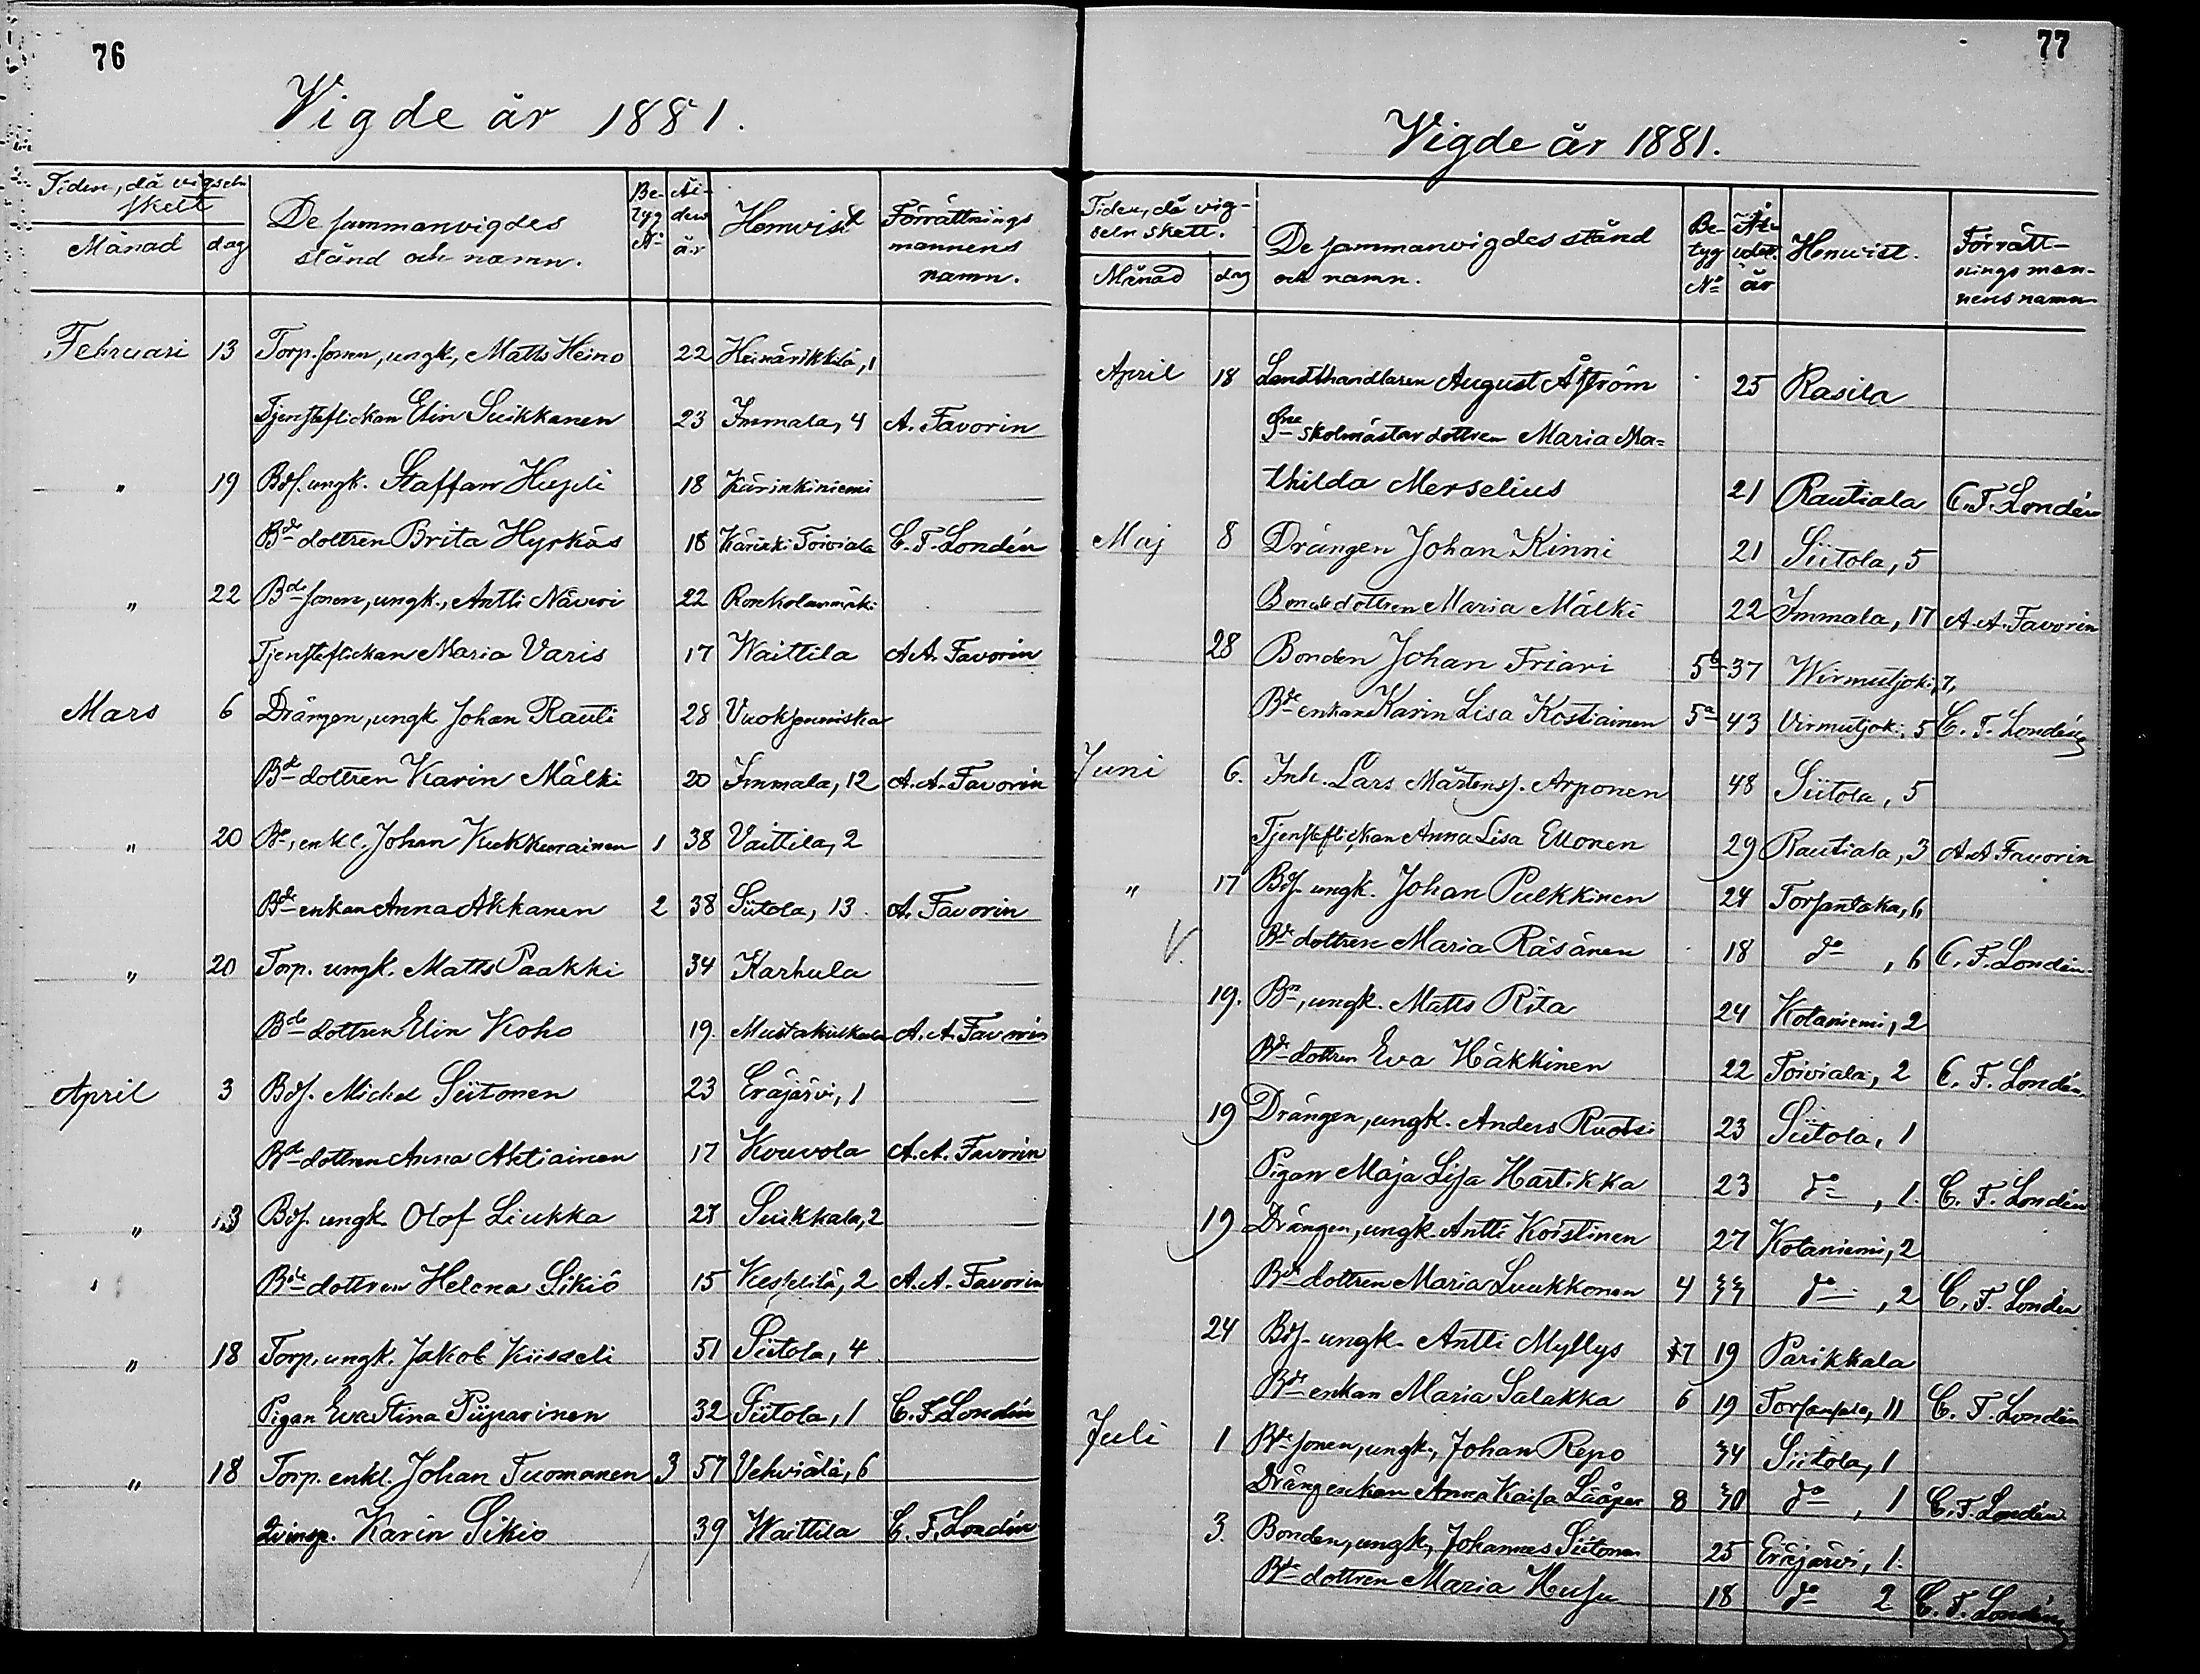 76
Vigde år 1881.
Tiden, då vigseln skett
Månad dag
De sammanvigdes stånd och namn.
Betyg No
Ålder år
Hemvist
Förrättningsmannens namn.
Februari 13 Torp. sonen, ungk., Matts Heino 22 Heinärikkilä, 1
Tjensteflickan Elin Suikkanen 23 Immala, 4 A. Favorin
" 19 Bds. ungk. Staffan Hupli 18 Kärinkiniemi
Bde dottren Brita Hyrkäs 18 Kärinki Toiviala C. F. Londén
" 22 Bde sonen, ungk., Antti Näveri 22
Tjensteflickan Maria Varis 17 Waittila A A. Favorin
Mars 6 Drängen, ungk Johan Rauti 28 Vuoksenniska
Bde dottren Karin Mälki 20 Immala, 12 A. A. Favorin
" 20 Bn, enkl. Johan Kukkurainen 1 38 Vaittila, 2
Bde enkan Anna Akkanen 2 38 Siitola, 13. A. Favorin
" 20 Torp. ungk. Matts Paakki 34 Karhula
Bde dottren Elin Koho 19. A. A. Favorin
April 3 Bds. Michel Siitonen 23 Eräjärvi, 1
Bde dottren Anna Ahtiainen 17 Kouvola A. A. Favorin
" 13 Bds. ungk. Olof Liukka 27 Suikkala, 2
Bde dottren Helena Sikiö 15 Keskilä, 2 A. A. Favorin
" 18 Torp. ungk. Jakob Kiiskeli 51 Siitola, 4
Pigan Eva Stina Piiparinen 32 Siitola, 1 C. F. Londén
" 18 Torp. enkl. Johan Tuomanen 3 57 Vehviälä, 6
Qvinsp. Karin Sikiö 39 Waittila C. F. Londén
77
Vigde år 1881.
Tiden, då vigseln skett.
Månad dag
De sammanvigdes stånd och namn.
Betyg No
Ålder år
Hemvist.
Förrättningsmannens namn
April 18 Landthandlaren August Åström 25 Rasila
skolmästardottren Maria Ma=
thilda Merselius 21 Rautiala C. F. Londén
Maj 8 Drängen Johan Kinni 21 Siitola, 5
Bondedottren Maria Mälki 22 Immala, 17 A. A. Favorin
28 Bonden Johan Friari 5b 37 Wirmutjoki, 7,
Bde enkan Karin Lisa Kostiainen 5a 43 Virmutjoki, 5 C. F. Londén
Juni 6. Inh. Lars Mårtenss. Arponen 48 Siitola, 5
Tjensteflickan Anna Lisa Ellonen 29 Rautiala, 3 A. A Favorin
" 17 Bds. ungk. Johan Pulkkinen 24 Torsantaka, 6,
V. Bde dottren Maria Räsänen 18 do, 6 C. F. Londén
19. Bn, ungk. Matts Rita 24 Kotaniemi, 2
Bde dottren Eva Häkkinen 22 Toiviala, 2 C. F. Londén.
19 Drängen, ungk. Anders Ruotsi 23 Siitola, 1
Pigan Maja Lisa Hartikka 23 do, 1. C. F. Londén
19 Drängen, ungk. Antti Koistinen 27 Kotaniemi, 2
Bde dottren Maria Luukkonen 4 33 do, 2 C. F. Londén
24 Bds. ungk. Antti Myllys 7 19 Parikkala
Bde enkan Maria Salakka 6 19 Torsansalo, 11 C. F. Londén
Juli 1 Bde sonen, ungk., Johan Repo 34 Siitola, 1
Drängenkan Anna Kaisa 8 30 do, 1 C. F. Londén
3. Bonden, ungk., Johannes Siitonen 25 Eräjärvi, 1.
Bde dottren Maria Husu 18 do 2 C. F. Londén